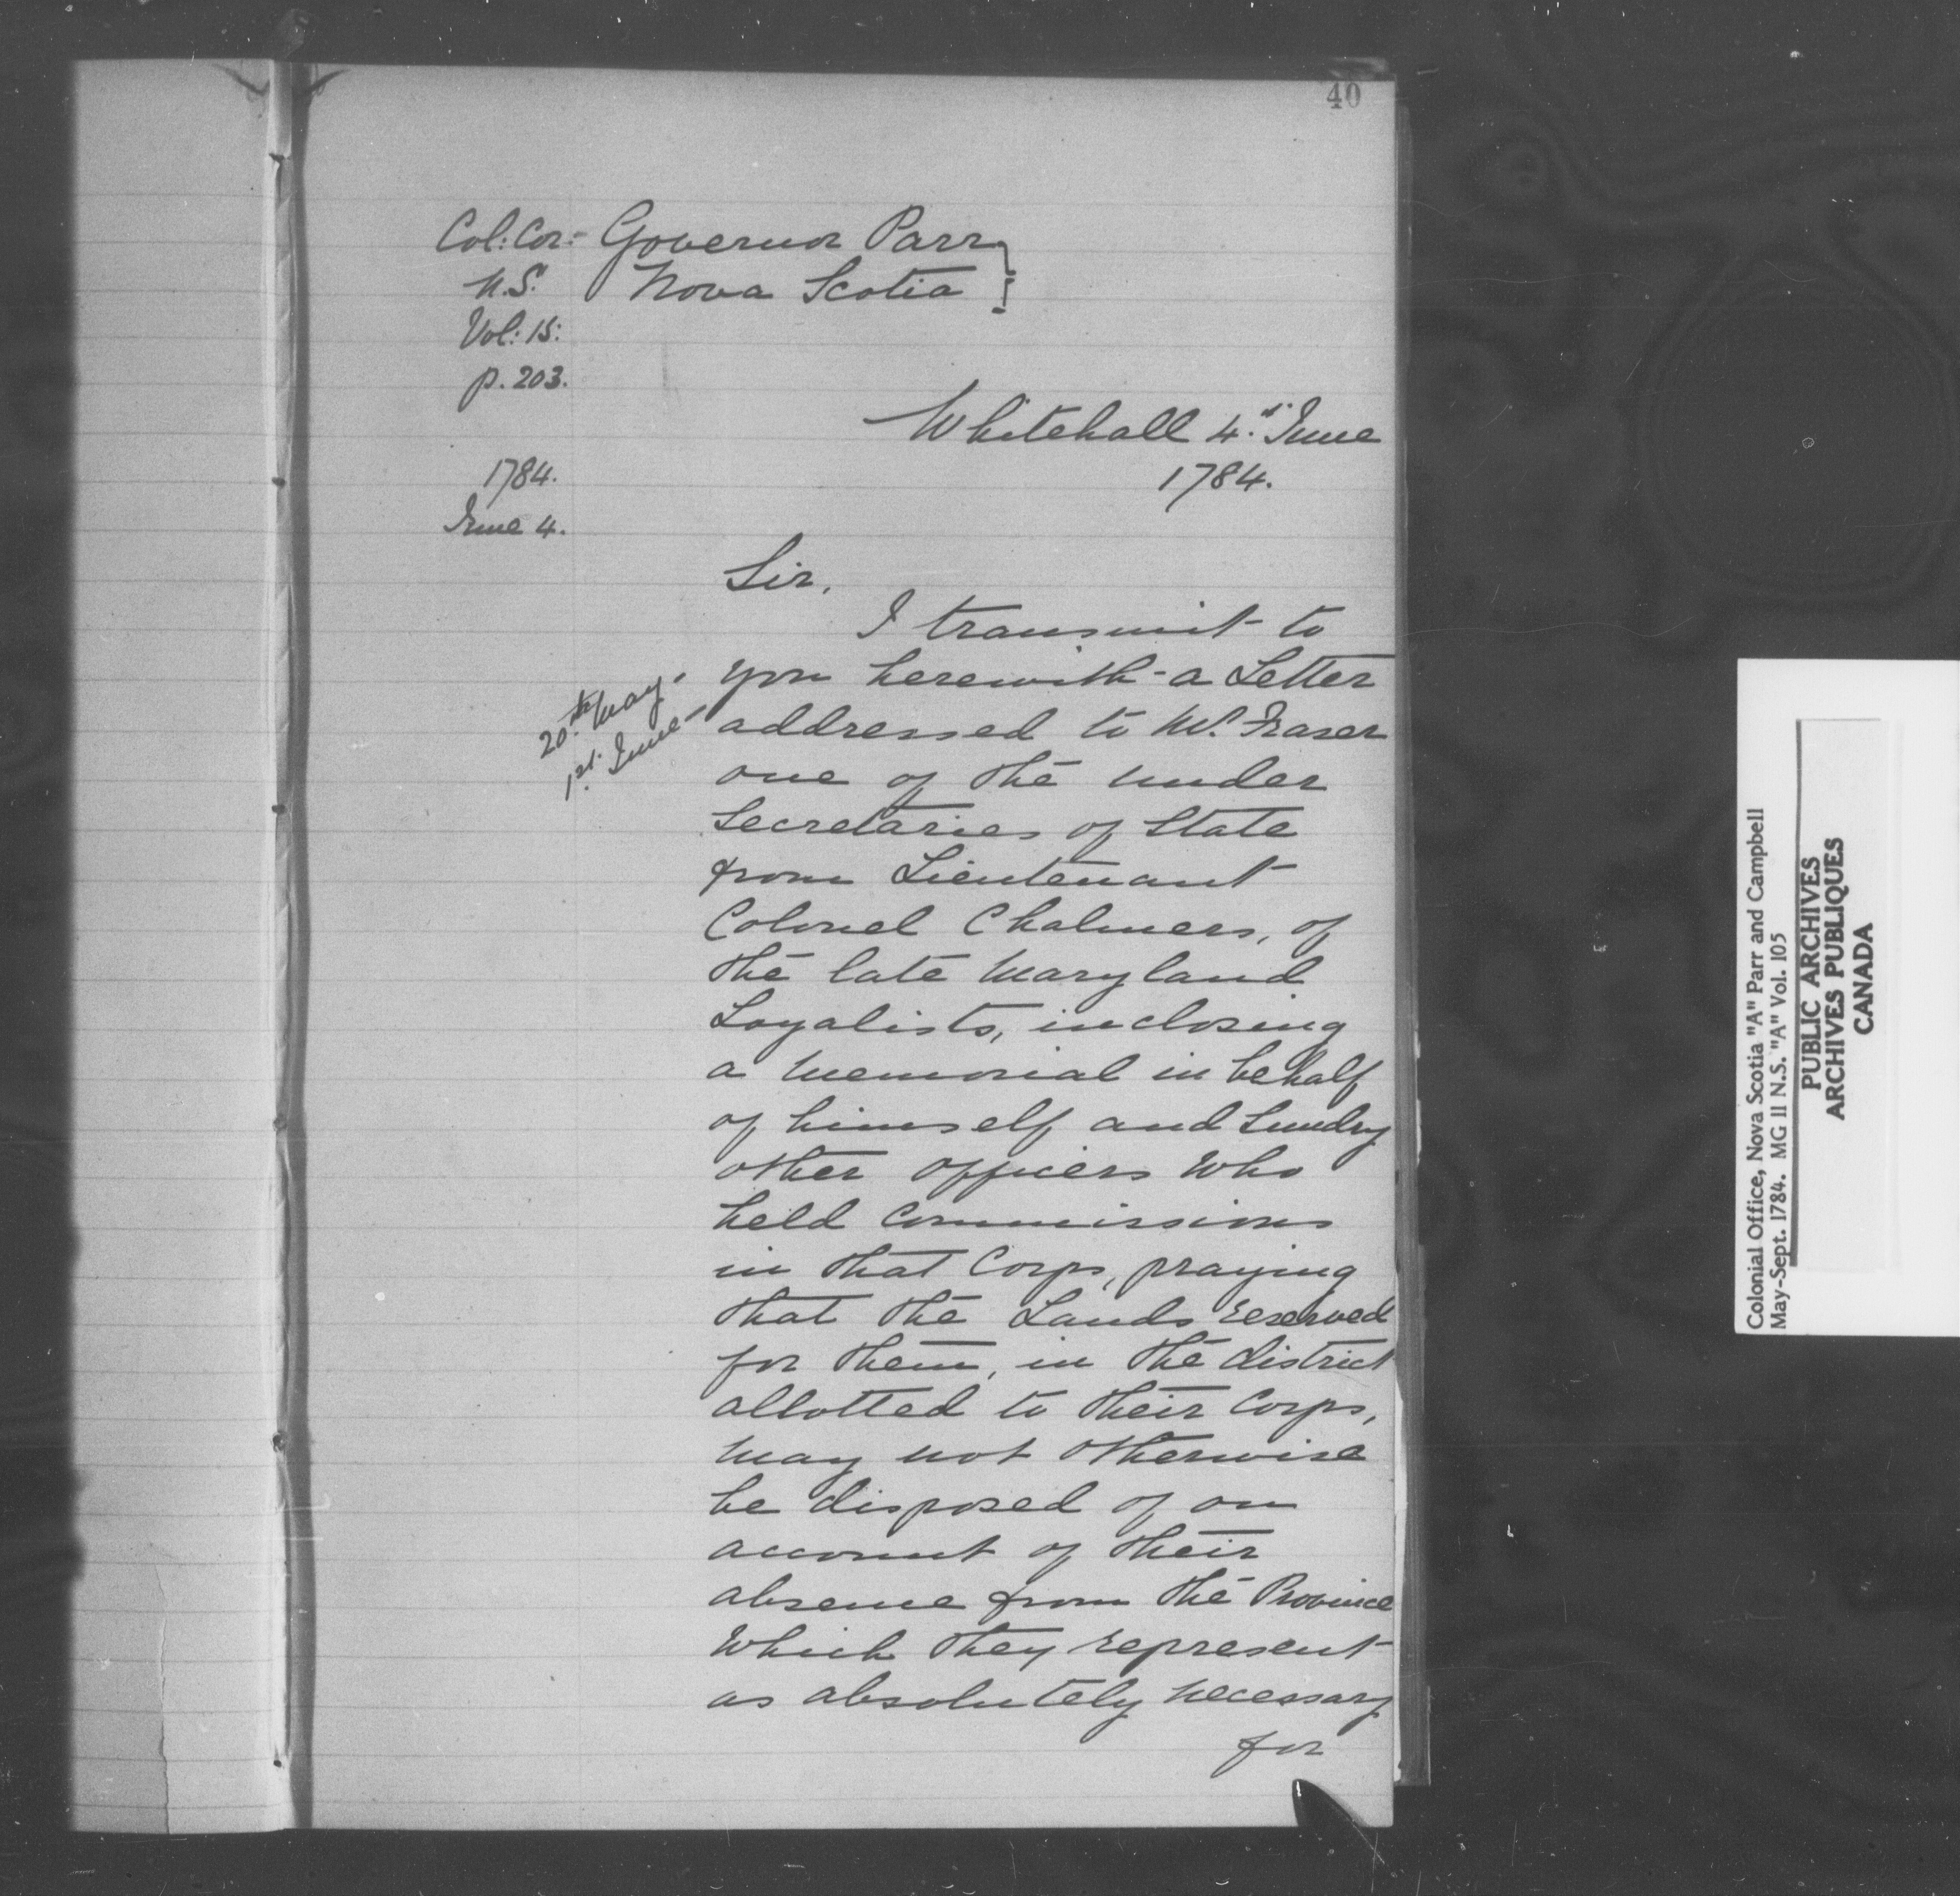 40
Col: Cor:- Governor Parr
N.S. Nova Scotia
Vol: 15:
p. 203.
Whitehall 4. June
1784.
1784.
June 4.
Sir,
I transmit to
20th May.
1st. June
you herewith - a Letter
addressed to Mr. Fraser
one of the under
Secretaries of State
from Lieutenant
Colonel Chalmers, of
the late Maryland
Loyalists, inclosing
a Memorial in behalf
of himself and Sundry
other officers who
held Commissions
in that Corps, praying
that the Lands reserved
for them, in the district
allotted to their Corps,
may not otherwise
be disposed of on
account of their
absence from the Province
which they represent
as absolutely necessary
for
Colonial Office, Nova Scotia "A" Parr and Campbell
May-Sept. 1784. MG 11 N.S. "A" Vol. 105
PUBLIC ARCHIVES
ARCHIVES PUBLIQUES
CANADA